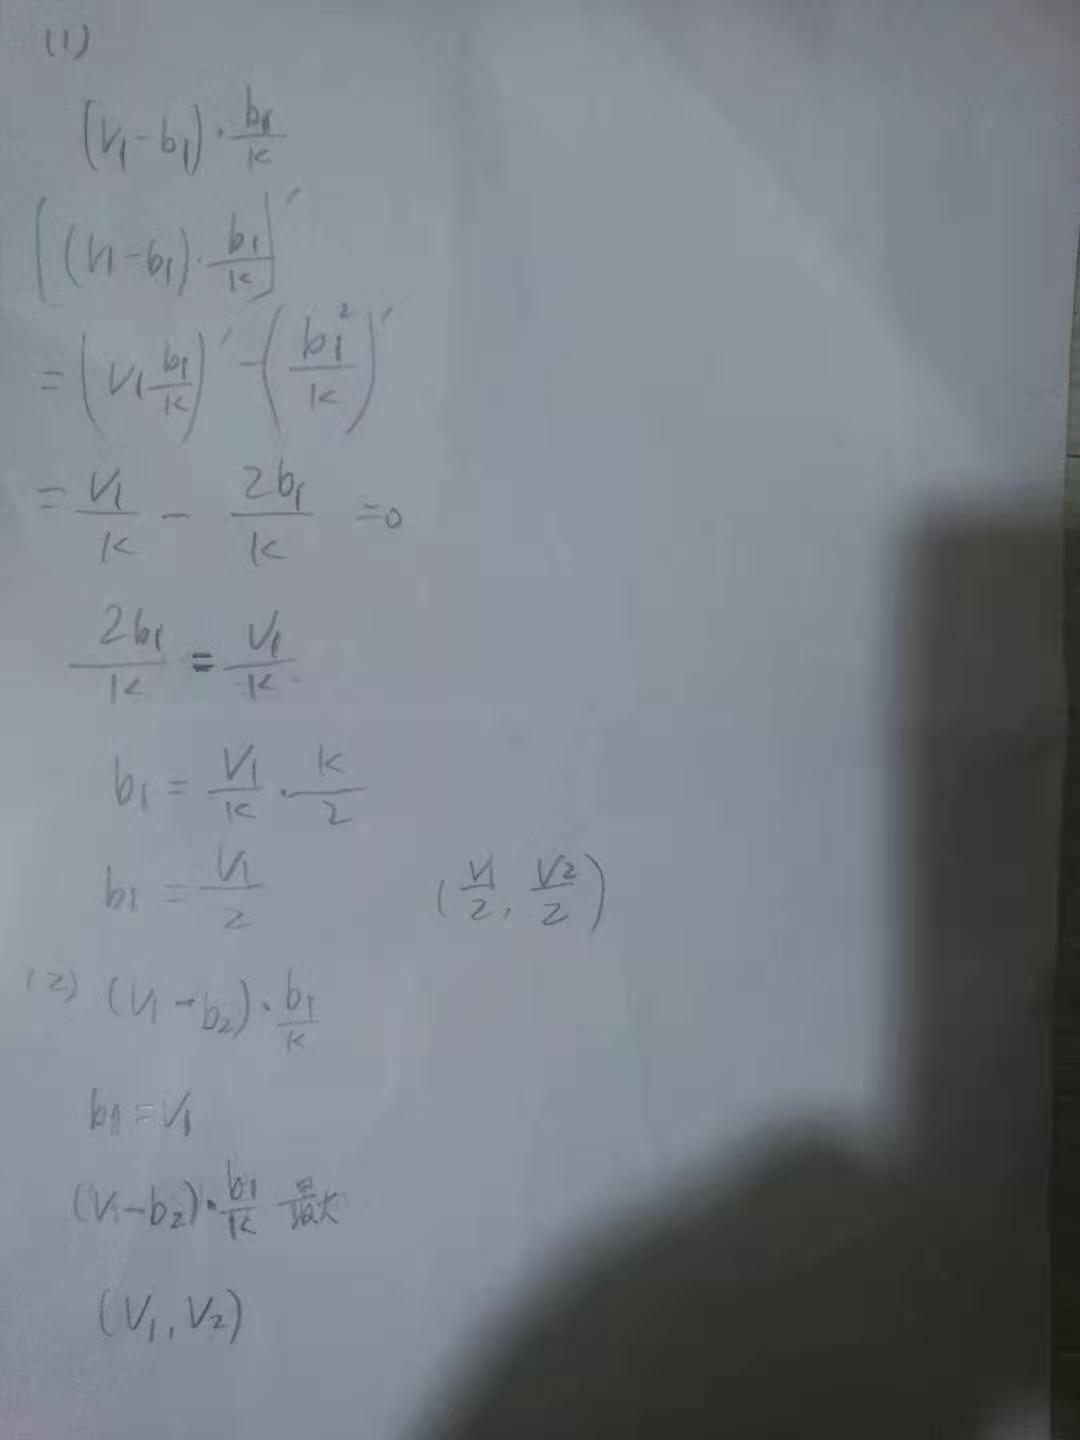 (1)
(V₁-b₁)·b₁/k
[(V₁-b₁)·b₁/k]′
=(V₁b₁/k)′-(b₁²/k)′
=V₁/k-2b₁/k=0
2b₁/k=V₁/k
b₁=V₁/k·k/2
b₁=V₁/2 (V₁/2,V₂/2)
(2) (V₁-b₂)·b₁/k
b₁=V₁
(V₁-b₂)·b₁/k 最大
(V₁,V₂)